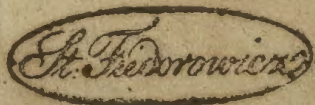 St. Fiedorowicza